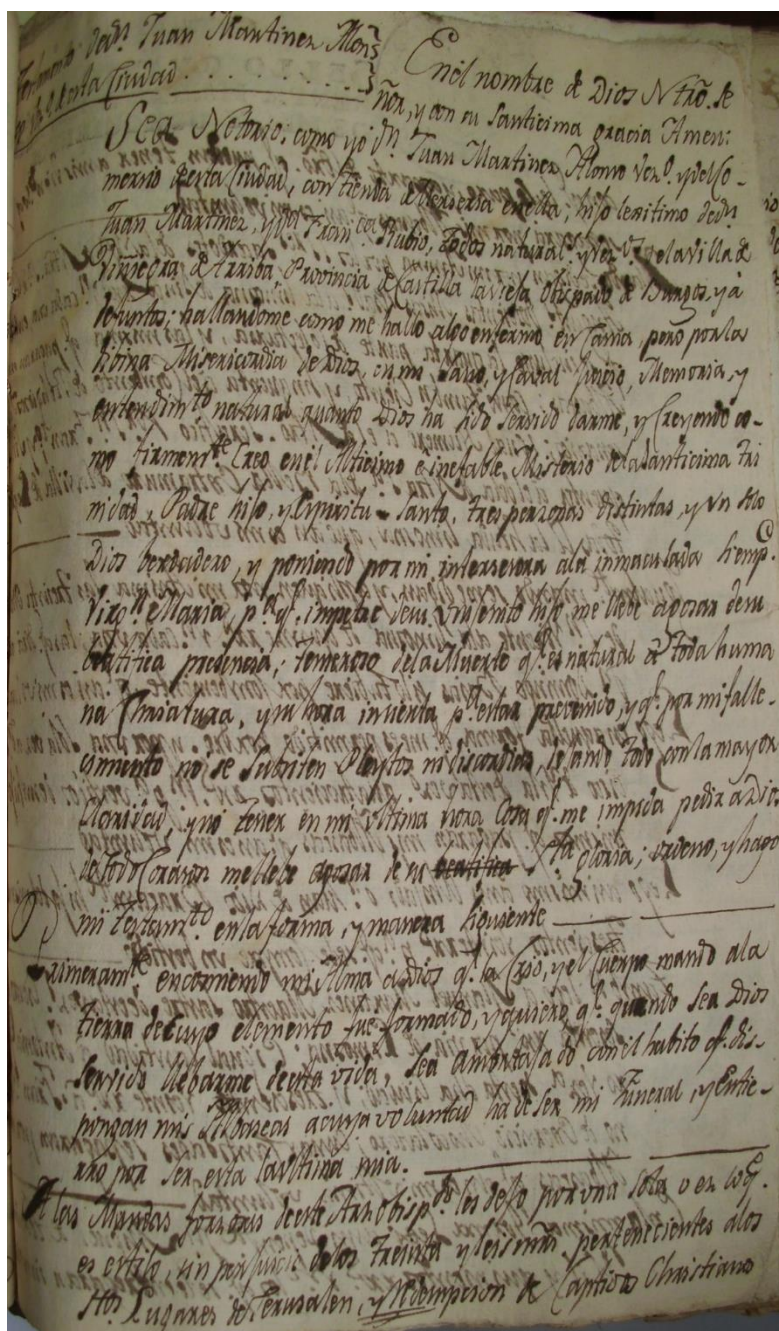 Testamento de dn. Juan Martinez Alons
de esta Ciudad
En el nombre de Dios Ntro. Se
ñor, y con su santicima gracia Amen:
Sea Notorio, como yo dn. Juan Martinez Alonso vezo. y del Co-
mersio de esta Ciudad, con tienda de Merseria en ella, hijo lexitimo de dn.
Juan Martinez, y Franca. Rubio, todos natural y vezos de la villa de
Viniegra de Arriba, Provincia de Castilla la vieja Obispado de Burgos, ya
defuntos; hallandome como me hallo algo enfermo en cama, pero por la
Divina Misericordia de Dios, en mi sano, y Caval Juicio, Memoria, y
entendimto. natural quanto Dios ha sido servido darme, y Creyendo co-
mo firmemte. Creo en el Altisimo e inefable Misterio de la Santicima Tri
nidad, Padre hijo, y Espiritu Santo, tres personas distintas, y Un solo
Dios berdadero, y poniendo por mi intersesora a la inmaculada siempe.
Virgn. Maria, pa. qe. impetre de su Unigenito hijo me llebe a gosar de su
beatifica precencia; temeroso de la Muerte qe. es natural a toda huma
na Criatura, y su hora incierta pa. estar prevenido, y qe. por mi falle-
cimiento no se susciten Pleytos ni discordias, dejando todo con la mayor
Claridad, y no tener en mi ultima hora Cosa qe. me impida pedir a Dios
de todo Corazon me llebe a gosar de su beatifica Sta. gloria; ordeno, y hago
mi Testamto. en la forma, y manera siguiente
Primeramte. encomiendo mi Alma a Dios qe. la Crió, y el Cuerpo mando a la
tierra de Cuyo elemento fue formado, y quiero qe. quando sea Dios
servido llebarme de esta vida, sea amortajado con el habito qe. dis-
pongan mis Albaseas a cuya voluntad ha de ser mi Funeral, y Entie-
rro por ser esta la ultima mia.
A las Mandas forsosas de este Arzobispdo. les dejo por una sola vez lo qe.
es estilo, sin perjuicio de los treinta y seis mrs. pertenecientes a los
Stos. Lugares de Jerusalen, y Redempcion de Captivos Christianos